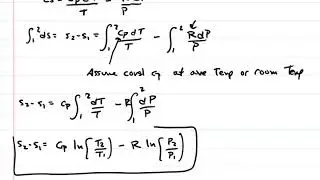 ds = Cp dT/T - R dP/P
∫₁² ds = s₂-s₁ = ∫₁² Cp dT/T - ∫₁² R dP/P
Assume const cp at ave Temp or room Temp
s₂-s₁ = Cp ∫₁² dT/T - R ∫₁² dP/P
s₂-s₁ = Cp ln[T₂/T₁] - R ln[P₂/P₁]